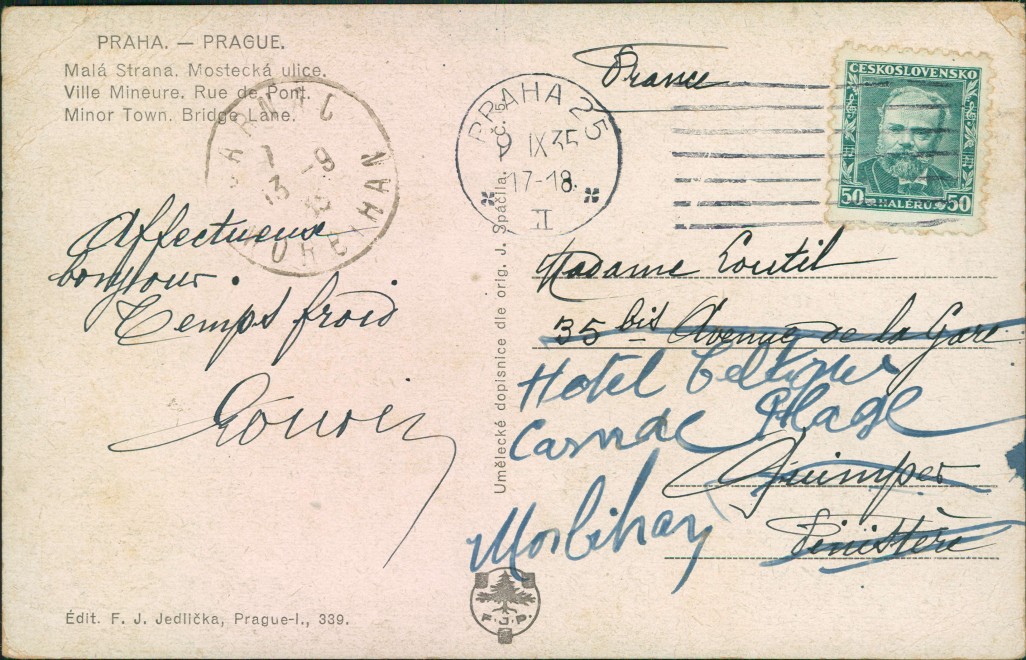 PRAHA. — PRAGUE.
Malá Strana. Mostecká ulice.
Ville Mineure. Rue de Pont.
Minor Town. Bridge Lane.
CARNAC
-9
13
MORBIHAN
Affectueux
bonjour.
Temps froid
Édit. F. J. Jedlička, Prague-I., 339.
Umělecké dopisnice dle orig. J. Spáčila, č. 5
F.J.P.
France
PRAHA 25
IX 35
17-18.
II
ČESKOSLOVENSKO
50 HALÉRŮ 50
Madame Loutil
35 bis Avenue de la Gare
Hotel Celtique
Carnac Plage
Quimper
Morbihan
Finistère